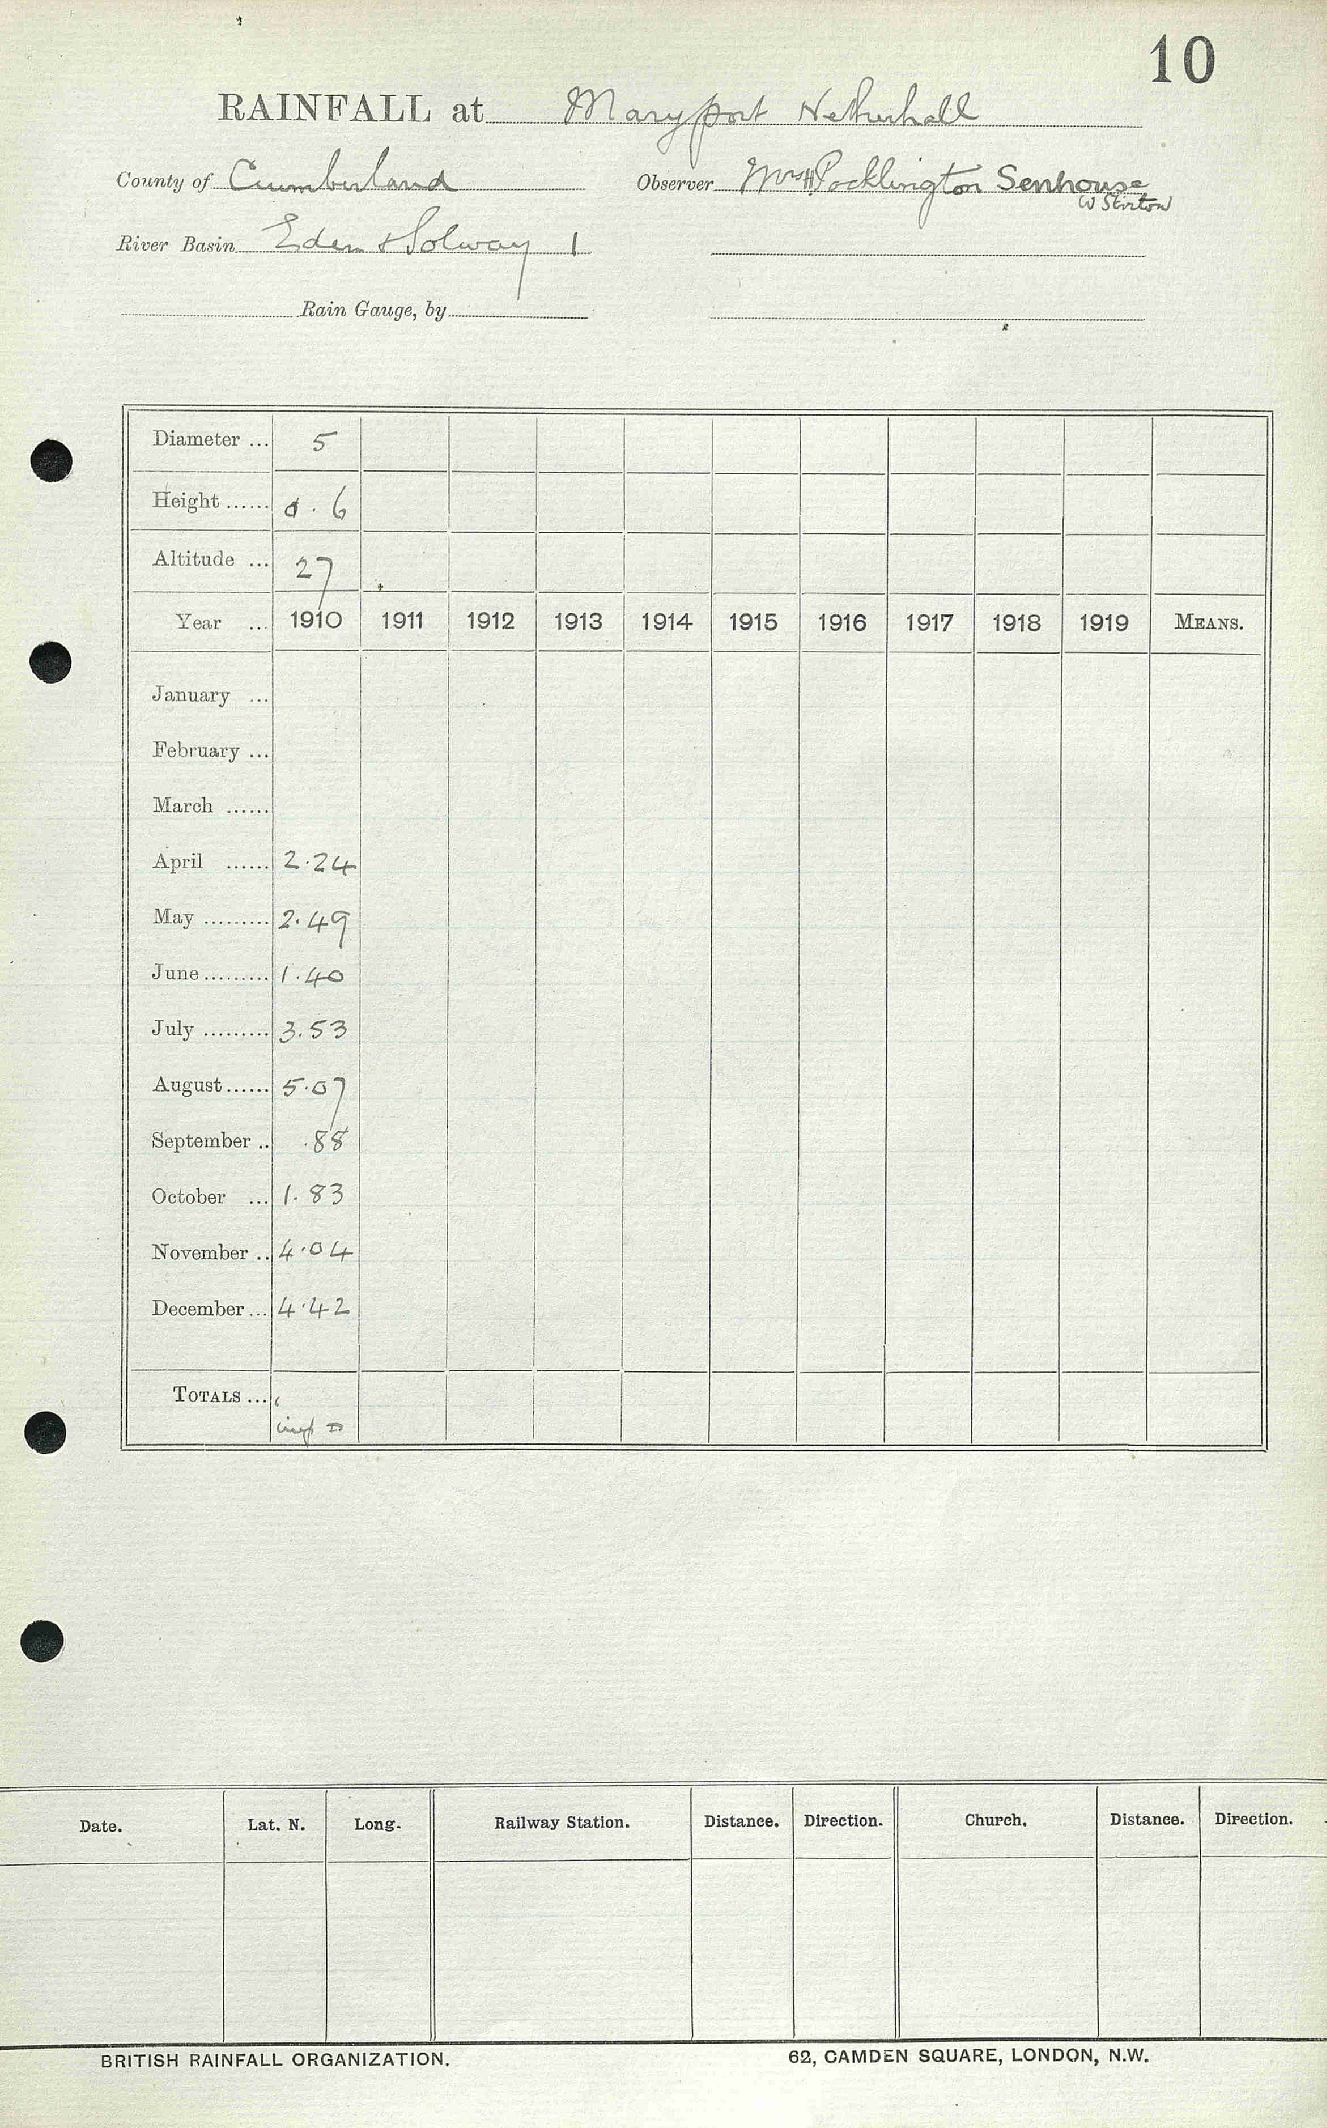 10
RAINFALL at Maryport Netherhall
County of Cumberland Observer Mrs H Pocklington Senhouse
W Stirton
River Basin Eden & Solway 1
Rain Gauge, by
Diameter ... 5
Height ...... 0.6
Altitude ... 27
Year ... 1910 1911 1912 1913 1914 1915 1916 1917 1918 1919 MEANS.
January ...
February ...
March ......
April ...... 2.24
May ......... 2.49
June ......... 1.40
July ......... 3.53
August ...... 5.07
September .. .88
October ... 1.83
November .. 4.04
December ... 4.42
TOTALS ...
Date. Lat. N. Long. Railway Station. Distance. Direction. Church. Distance. Direction.
BRITISH RAINFALL ORGANIZATION. 62, CAMDEN SQUARE, LONDON, N.W.